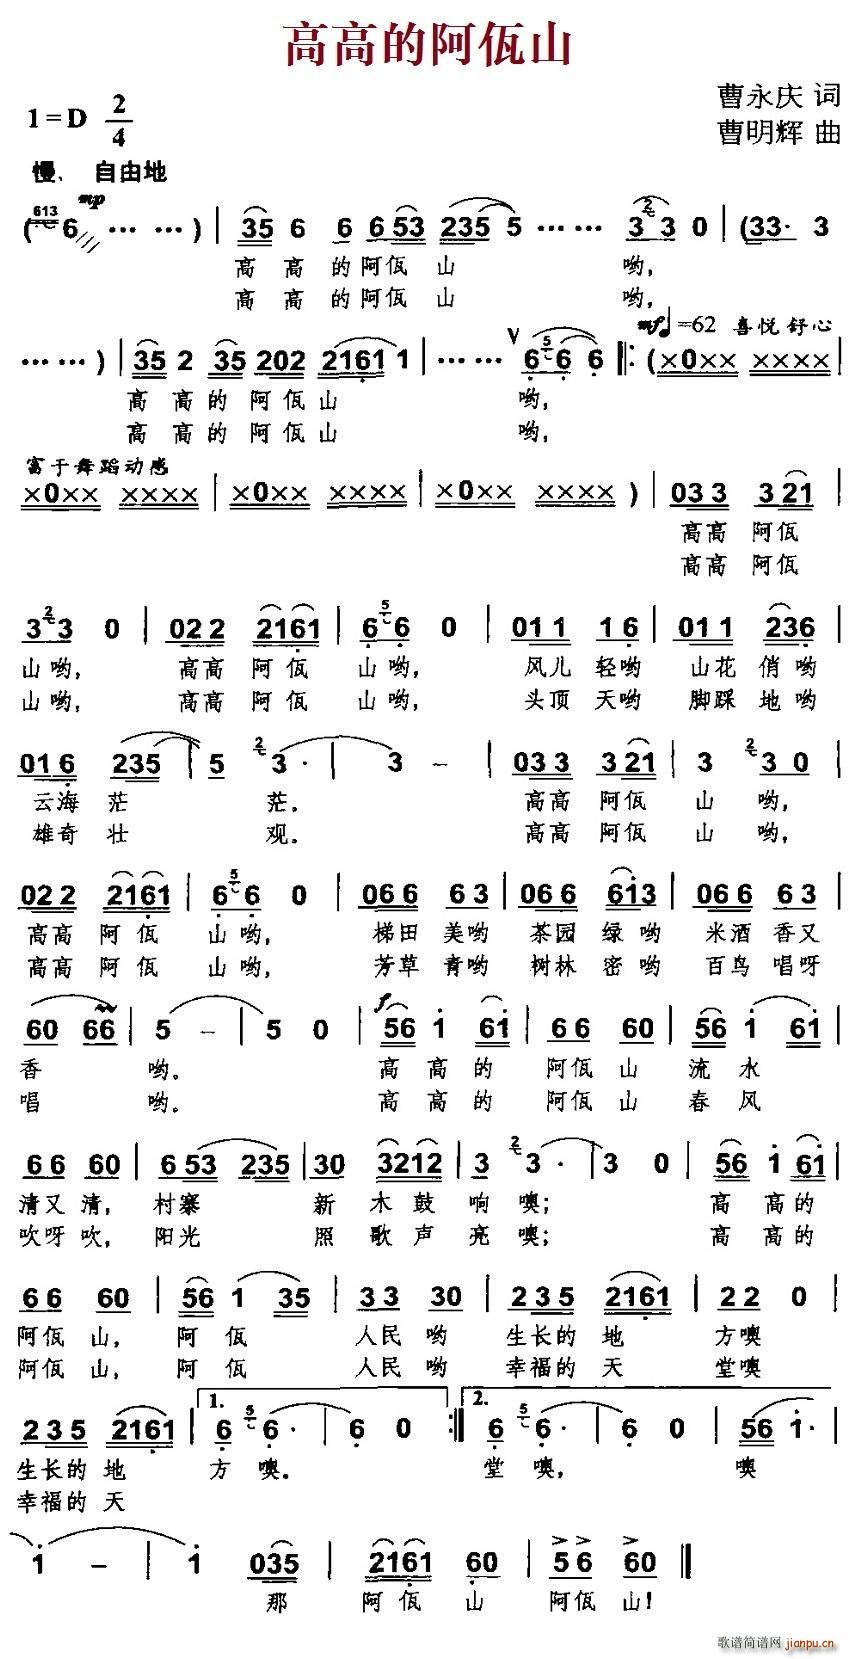 高高的阿佤山
曹永庆 词
1=D 2/4
曹明辉 曲
慢、自由地
mp
(613 6 … …) | 35 6 6 6 53 235 5 … … 2 3 3 0 | (33· 3
高 高 的 阿佤 山 哟,
高 高 的 阿佤 山 哟,
mf ♩=62 喜悦 舒心
… …) | 35 2 35 202 2161 1 | … … V 6 5 6 6 ‖: (×0×× ×××× |
高 高 的 阿 佤 山 哟,
高 高 的 阿 佤 山 哟,
富于舞蹈动感
×0×× ×××× | ×0×× ×××× | ×0×× ×××× ) | 033 321 |
高高 阿佤
高高 阿佤
3 2 3 0 | 022 2161 | 6 5 6 0 | 011 16 | 011 236 |
山哟, 高高 阿佤 山哟, 风儿 轻哟 山花 俏哟
山哟, 高高 阿佤 山哟, 头顶 天哟 脚踩 地哟
016 235 | 5 2 3· | 3 – | 033 321 | 3 2 3 0 |
云海 茫 茫. 高高 阿佤 山 哟,
雄奇 壮 观. 高高 阿佤 山 哟,
022 2161 | 6 5 6 0 | 066 63 | 066 613 | 066 63 |
高高 阿佤 山哟, 梯田 美哟 茶园 绿哟 米酒 香又
高高 阿佤 山哟, 芳草 青哟 树林 密哟 百鸟 唱呀
f
60 66 | 5 – | 5 0 | 56 1 61 | 66 60 | 56 1 61 |
香 哟. 高 高 的 阿佤 山 流 水
唱 哟. 高 高 的 阿佤 山 春 风
66 60 | 653 235 | 30 3212 | 3 2 3· | 3 0 | 56 1 61 |
清又 清, 村寨 新 木 鼓 响 噢; 高 高 的
吹呀 吹, 阳光 照 歌 声 亮 噢; 高 高 的
66 60 | 56 1 35 | 33 30 | 235 2161 | 22 0 |
阿佤 山, 阿 佤 人民 哟 生长的 地 方噢
阿佤 山, 阿 佤 人民 哟 幸福的 天 堂噢
235 2161 | 1. 6 5 6· | 6 0 :‖ 2. 6 5 6· | 6 0 | 56 1· |
生长的 地 方 噢. 堂 噢, 噢
幸福的 天
1 – | 1 035 | 2161 60 | 5 6 60 ‖
那 阿 佤 山 阿佤 山!
歌谱简谱网 jianpu.cn